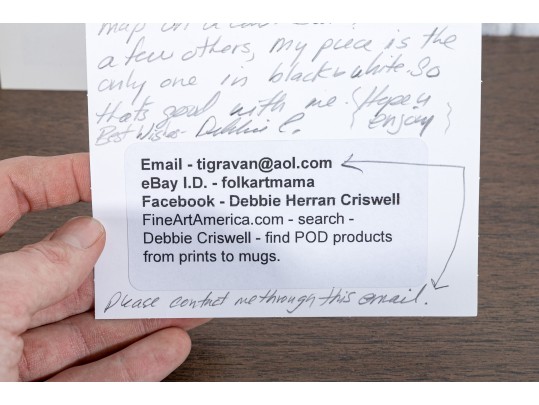 map on a
a few others, my piece is the
only one in black & white. So
that's good with me. {Hope u
Best Wishes - Debbie C. enjoy}
Email - tigravan@aol.com
eBay I.D. - folkartmama
Facebook - Debbie Herran Criswell
FineArtAmerica.com - search -
Debbie Criswell - find POD products
from prints to mugs.
Please contact me through this email.